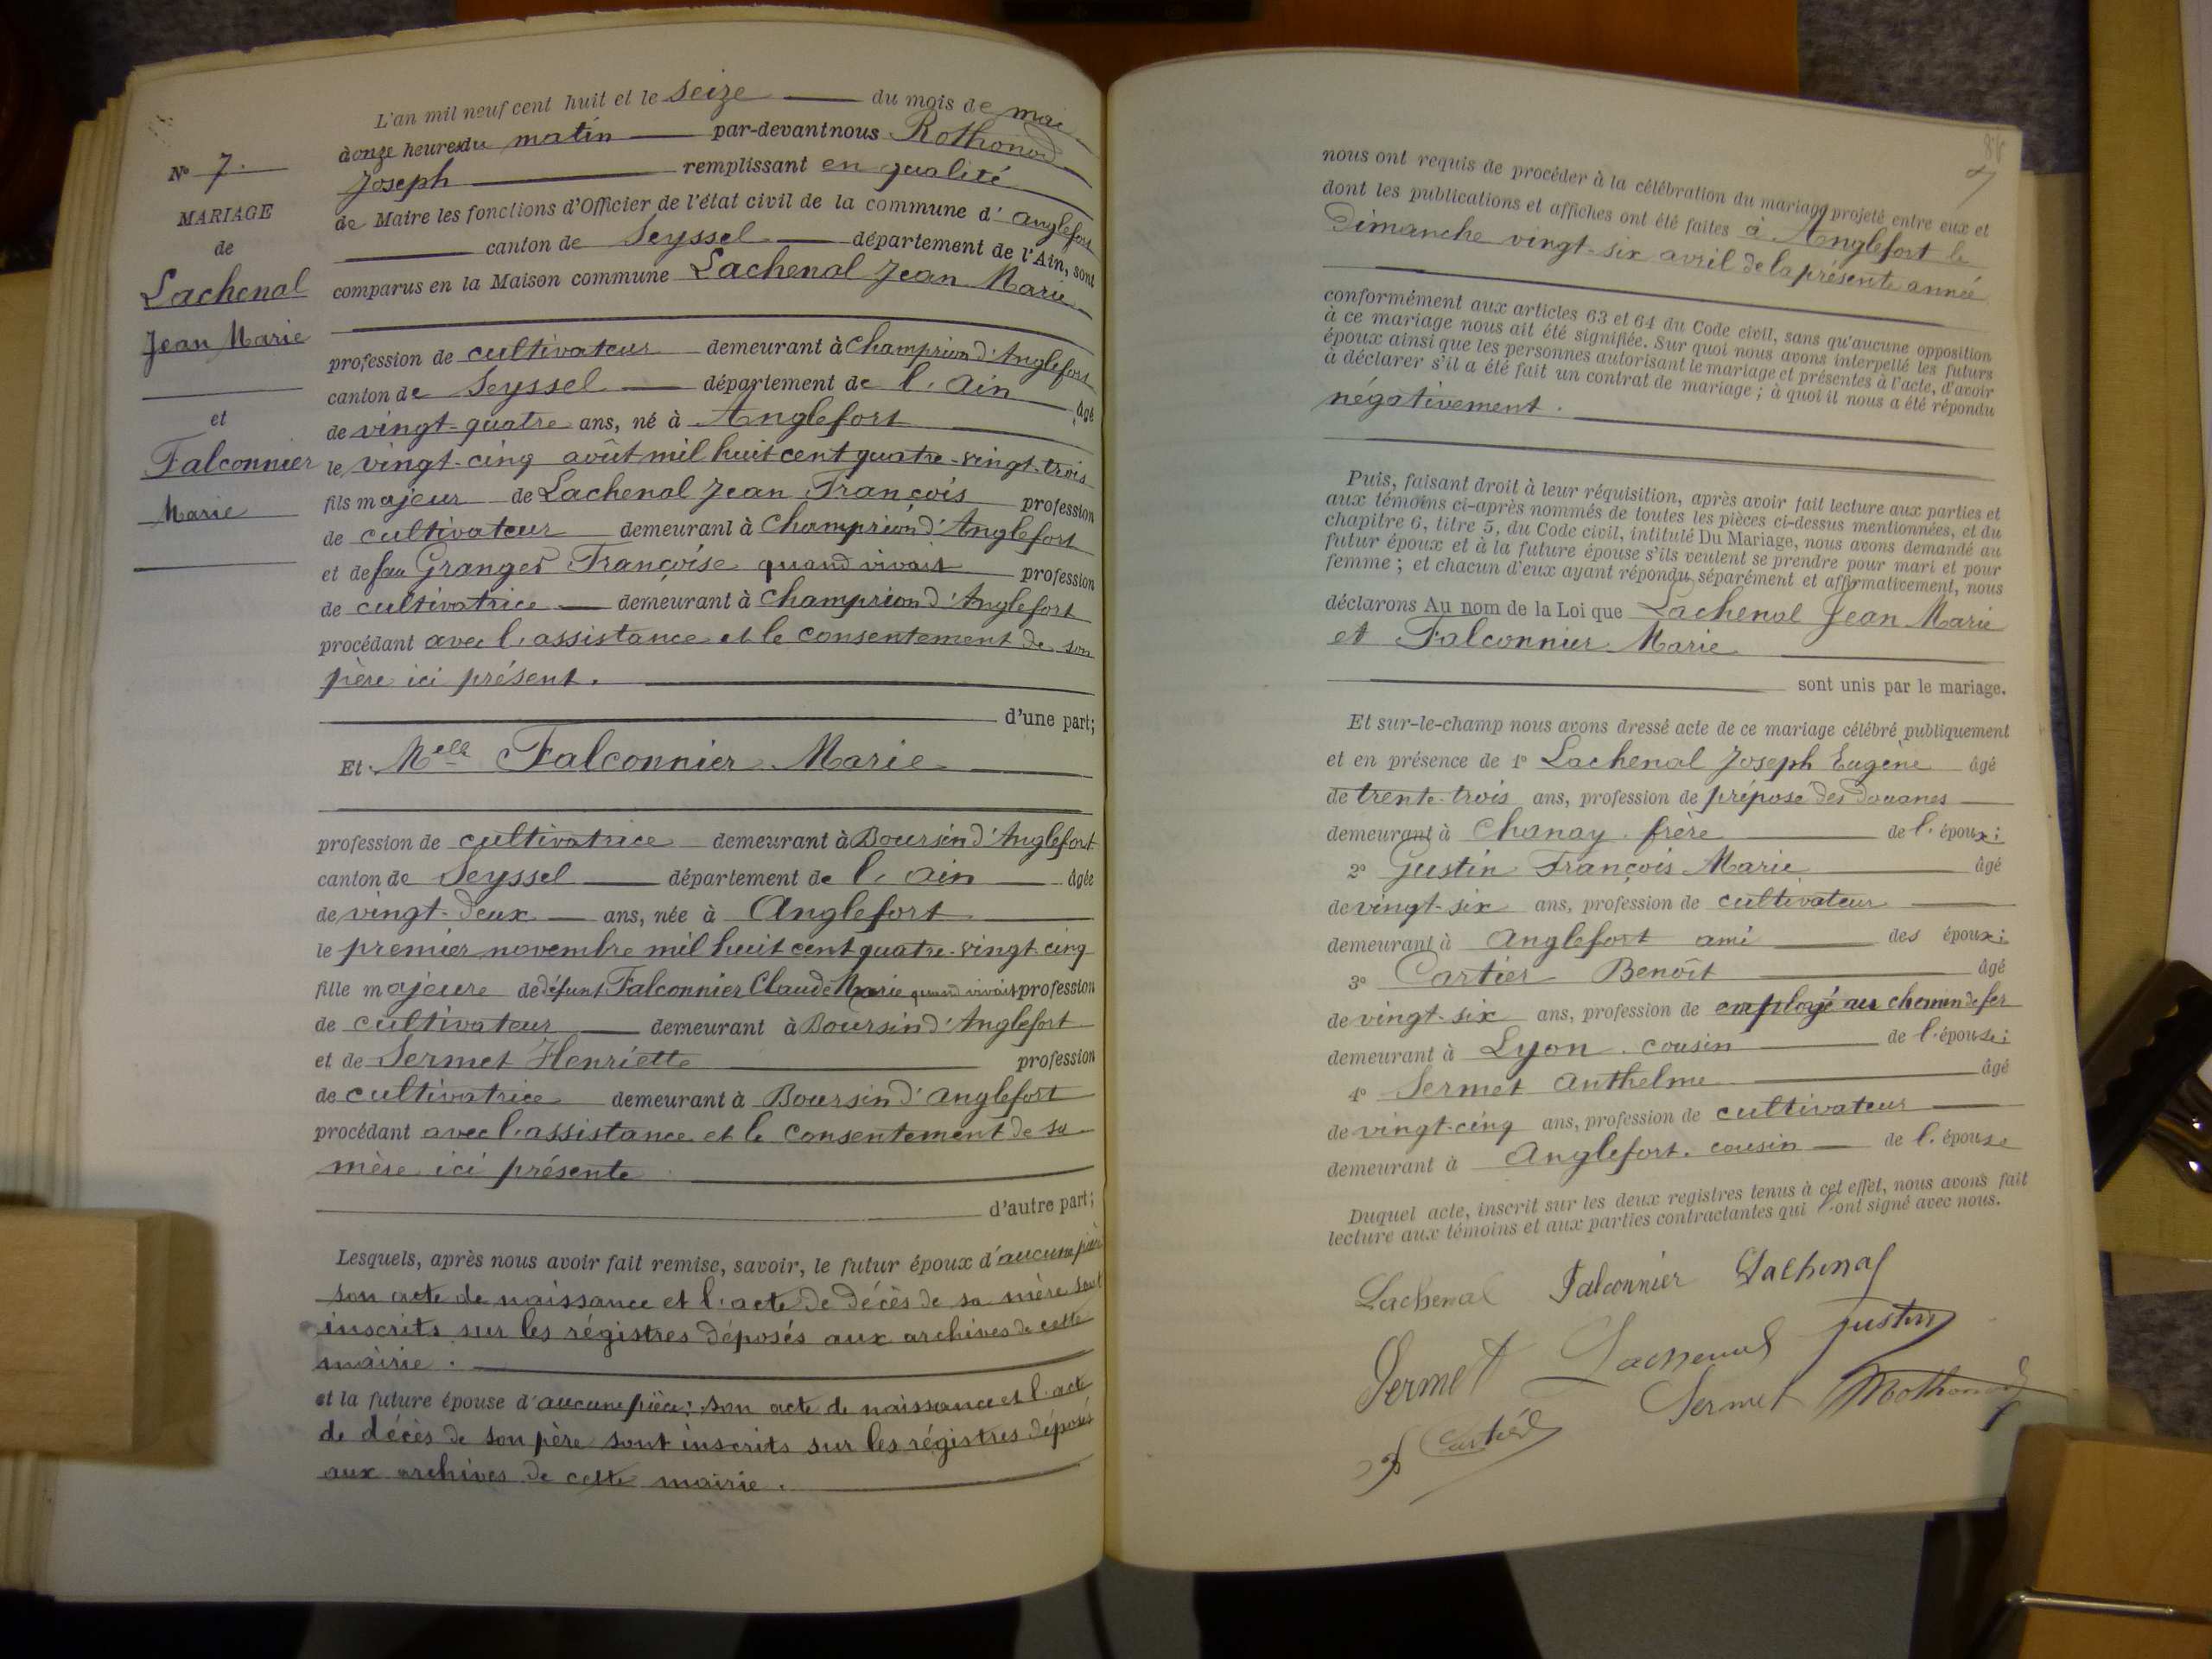 N° 7.
MARIAGE
de
Lachenal
Jean Marie
et
Falconnier
Marie
L'an mil neuf cent huit et le seize du mois de mai
à onze heures du matin par-devant nous Rothonod
Joseph remplissant en qualité
de Maire les fonctions d'Officier de l'état civil de la commune d'Anglefort
canton de Seyssel département de l'Ain, sont
comparus en la Maison commune Lachenal Jean Marie
profession de cultivateur demeurant à Champrion d'Anglefort
canton de Seyssel département de l'Ain âgé
de vingt-quatre ans, né à Anglefort
le vingt-cinq août mil huit cent quatre-vingt-trois
fils majeur de Lachenal Jean François profession
de cultivateur demeurant à Champrion d'Anglefort
et de feu Granger Françoise quand vivait profession
de cultivatrice demeurant à Champrion d'Anglefort
procédant avec l'assistance et le consentement de son
père ici présent.
d'une part;
Et Melle Falconnier Marie
profession de cultivatrice demeurant à Boursin d'Anglefort
canton de Seyssel département de l'Ain âgée
de vingt-deux ans, née à Anglefort
le premier novembre mil huit cent quatre-vingt-cinq
fille majeure de défunt Falconnier Claude Marie quand vivait profession
de cultivateur demeurant à Boursin d'Anglefort
et de Sermet Henriette profession
de cultivatrice demeurant à Boursin d'Anglefort
procédant avec l'assistance et le consentement de sa
mère ici présente
d'autre part;
Lesquels, après nous avoir fait remise, savoir, le futur époux d'aucune pièce
son acte de naissance et l'acte de décès de sa mère sont
inscrits sur les régistres déposés aux archives de cette
mairie.
et la future épouse d'aucune pièce; son acte de naissance et l'acte
de décès de son père sont inscrits sur les régistres déposés
aux archives de cette mairie.
nous ont requis de procéder à la célébration du mariage projeté entre eux et
dont les publications et affiches ont été faites à Anglefort le
Dimanche vingt-six avril de la présente année
conformément aux articles 63 et 64 du Code civil, sans qu'aucune opposition
à ce mariage nous ait été signifiée. Sur quoi nous avons interpellé les futurs
époux ainsi que les personnes autorisant le mariage et présentes à l'acte, d'avoir
à déclarer s'il a été fait un contrat de mariage; à quoi il nous a été répondu
négativement.
Puis, faisant droit à leur réquisition, après avoir fait lecture aux parties et
aux témoins ci-après nommés de toutes les pièces ci-dessus mentionnées, et du
chapitre 6, titre 5, du Code civil, intitulé Du Mariage, nous avons demandé au
futur époux et à la future épouse s'ils veulent se prendre pour mari et pour
femme; et chacun d'eux ayant répondu séparément et affirmativement, nous
déclarons Au nom de la Loi que Lachenal Jean Marie
et Falconnier Marie
sont unis par le mariage.
Et sur-le-champ nous avons dressé acte de ce mariage célébré publiquement
et en présence de 1° Lachenal Joseph Eugène âgé
de trente-trois ans, profession de préposé des douanes
demeurant à Chanay frère de l'époux;
2° Gustin François Marie âgé
de vingt-six ans, profession de cultivateur
demeurant à Anglefort ami des époux;
3° Cartier Benoît âgé
de vingt-six ans, profession de employé au chemin de fer
demeurant à Lyon cousin de l'épouse;
4° Sermet Anthelme âgé
de vingt-cinq ans, profession de cultivateur
demeurant à Anglefort. cousin de l'épouse
Duquel acte, inscrit sur les deux registres tenus à cet effet, nous avons fait
lecture aux témoins et aux parties contractantes qui l'ont signé avec nous.
Lachenal Falconnier Lachenal
Sermet Lachenal Gustin
Sermet Rothonod
Cartier